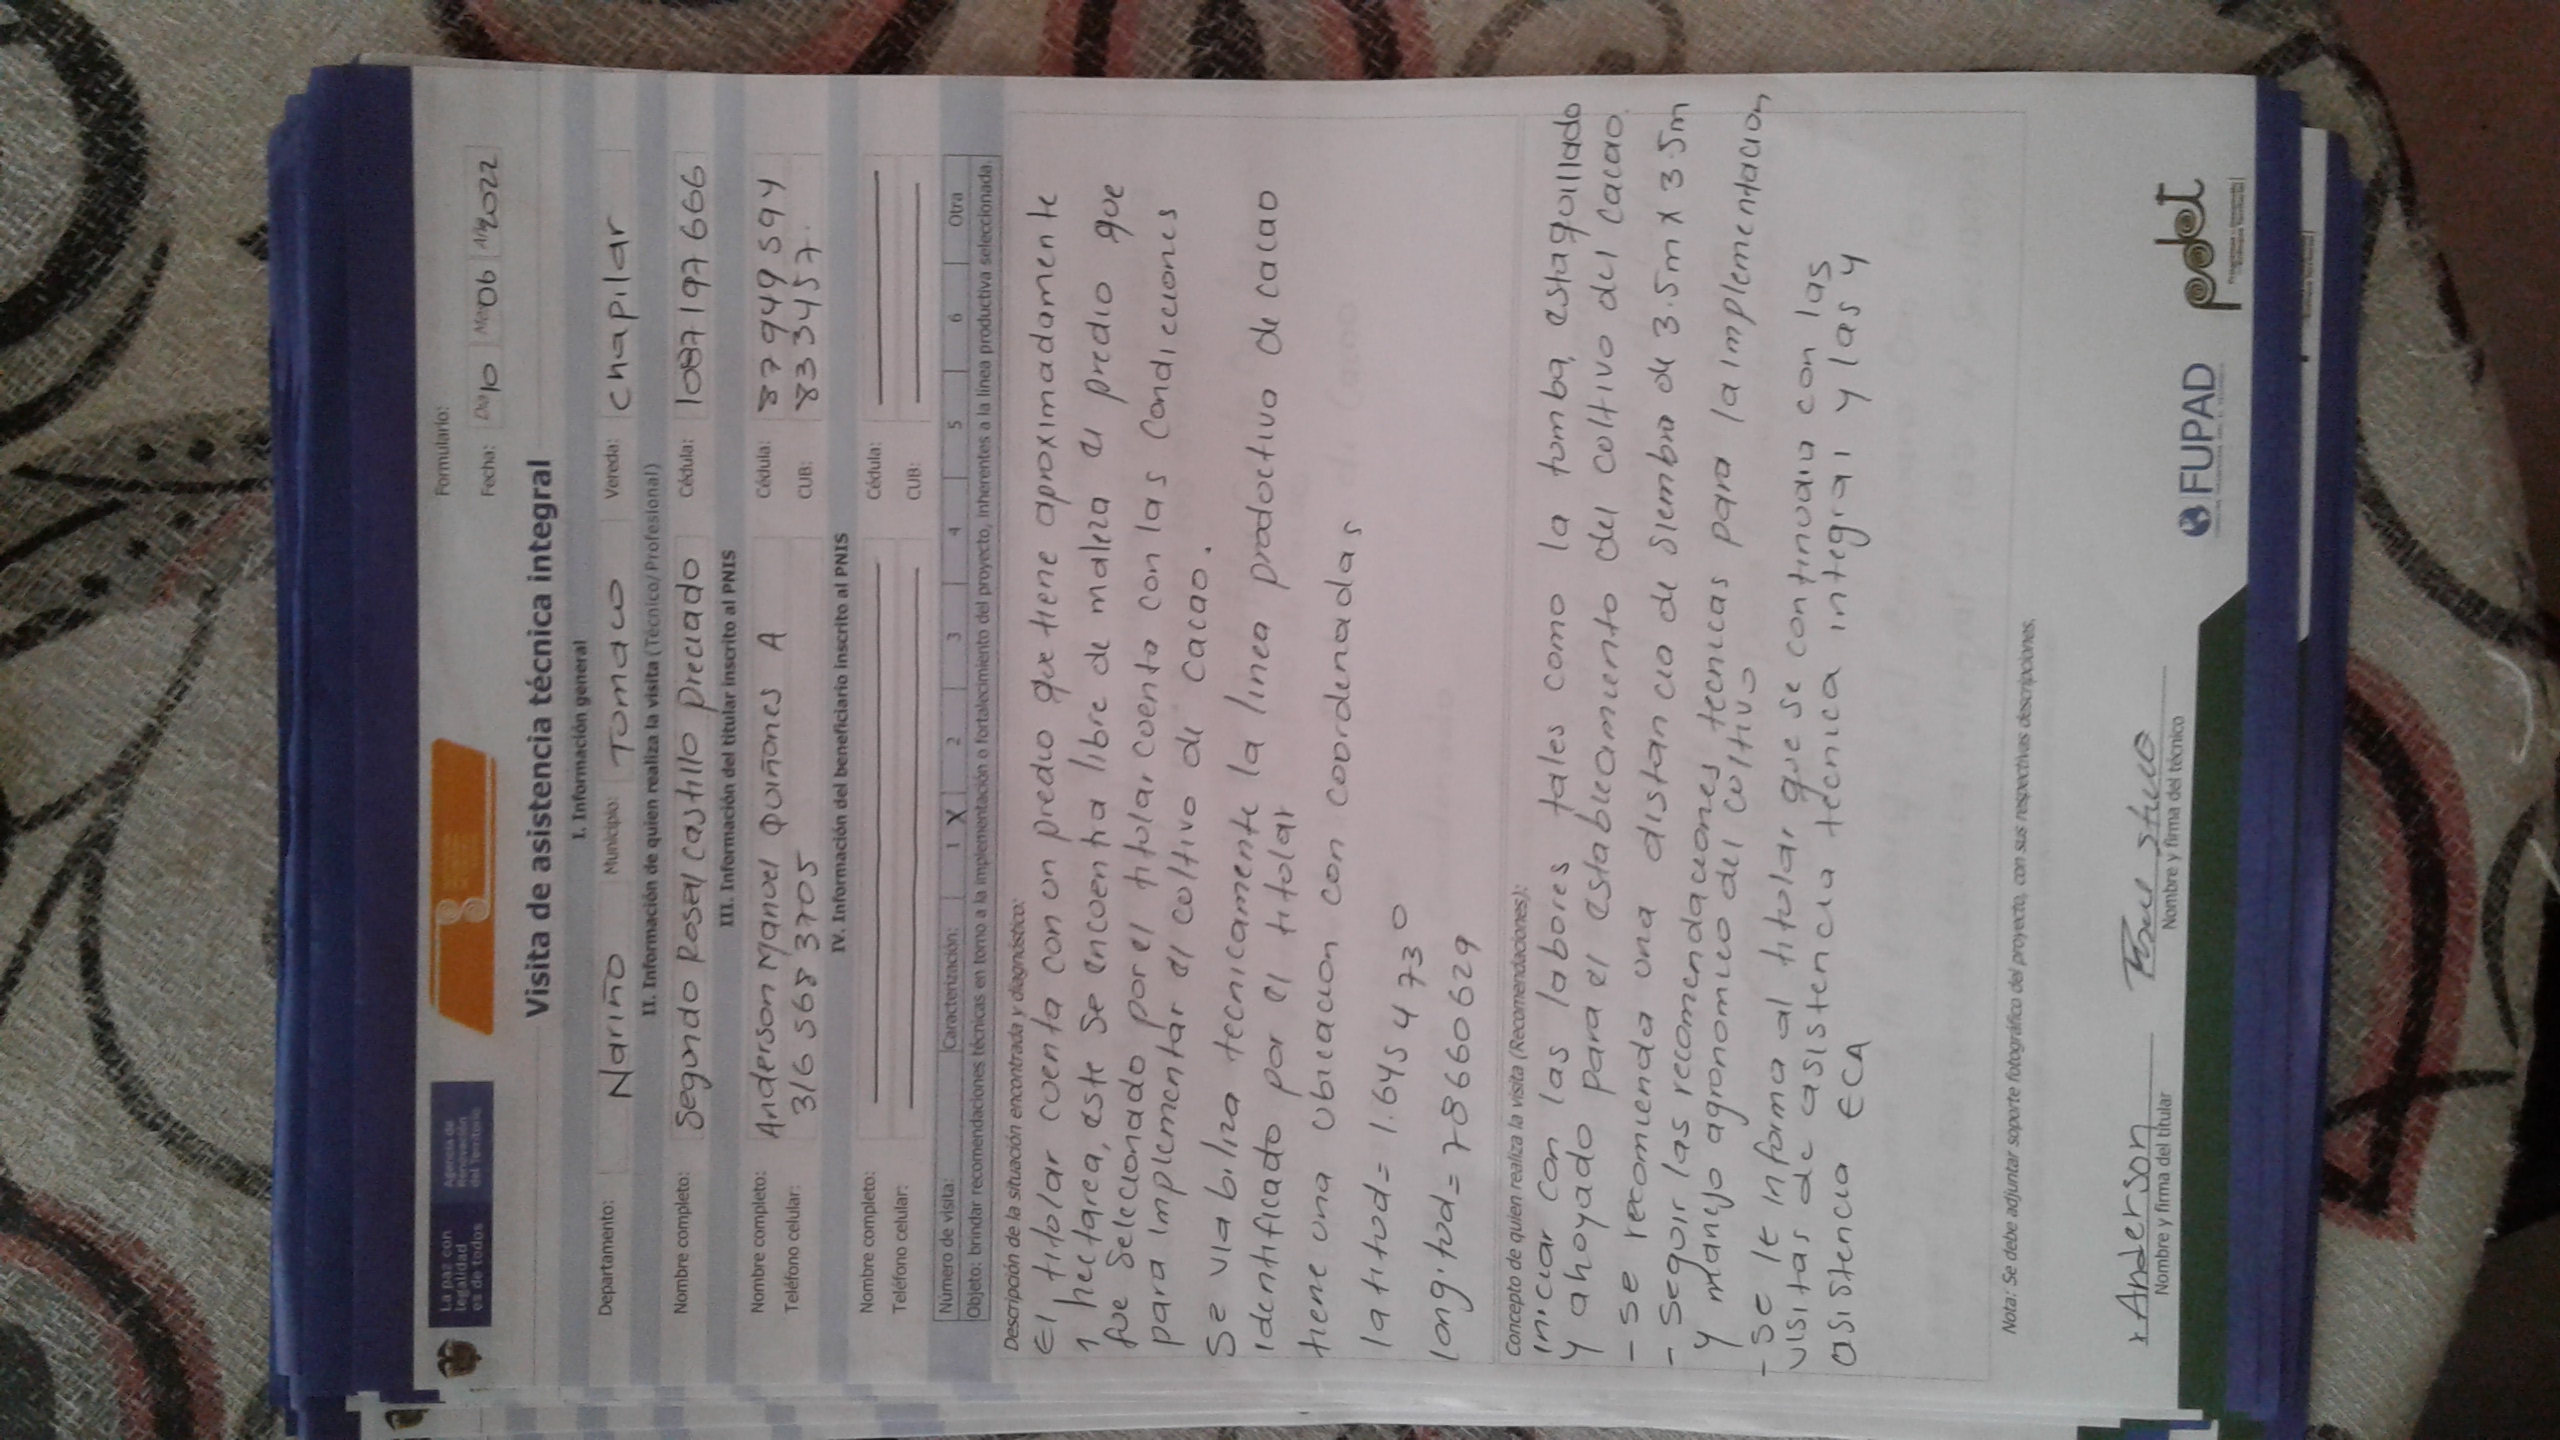 La paz con
legalidad
es de todos
Agencia de
Renovación
del Territorio
Formulario:
Fecha: Dia 10 Mes 06 Año 2022
Visita de asistencia técnica integral
I. Información general
Departamento: Nariño Municipio: Tomaco Vereda: Chapilar
II. Información de quien realiza la visita (Técnico/Profesional)
Nombre completo: Segundo Rosel Castillo Preciado Cédula: 1087197666
III. Información del titular inscrito al PNIS
Nombre completo: Anderson Manoel Quiñones A Cédula: 87949594
Teléfono celular: 316 568 3705 CUB: 833457.
IV. Información del beneficiario inscrito al PNIS
Nombre completo: Cédula:
Teléfono celular: CUB:
Número de visita: Caracterización: 1 X 2 3 4 5 6 Otra
Objeto: brindar recomendaciones técnicas en torno a la implementación o fortalecimiento del proyecto, inherentes a la línea productiva seleccionada.
Descripción de la situación encontrada y diagnóstico:
El titolar cuenta con un predio que tiene aproximadamente
1 hectarea, este se encuentra libre de maleza el predio que
fue Selecionado por el titolar cuenta con las condicciones
para implementar el coltivo de cacao.
Se viabiliza tecnicamente la linea prodoctivo de cacao
identificado por el titolar
tiene una Ubicacion con coordenadas
latitud= 1.6454730
longitud= 78660629
Concepto de quien realiza la visita (Recomendaciones):
iniciar con las labores tales como la tomba, estaquillado
y ahoyado para el establecimiento del coltivo del cacao.
- se recomienda una distancia de Siembra de 3.5m x 3.5m
- Seguir las recomendaciones tecnicas para la implementacion
y manejo agronomico del coltivo
- Se le informa al titolar que se continuara con las
visitas de asistencia técnica integral y las 4
asistencia ECA
Nota: Se debe adjuntar soporte fotográfico del proyecto, con sus respectivas descripciones.
x Anderson
Nombre y firma del titular
Nombre y firma del técnico
FUPAD
pdet